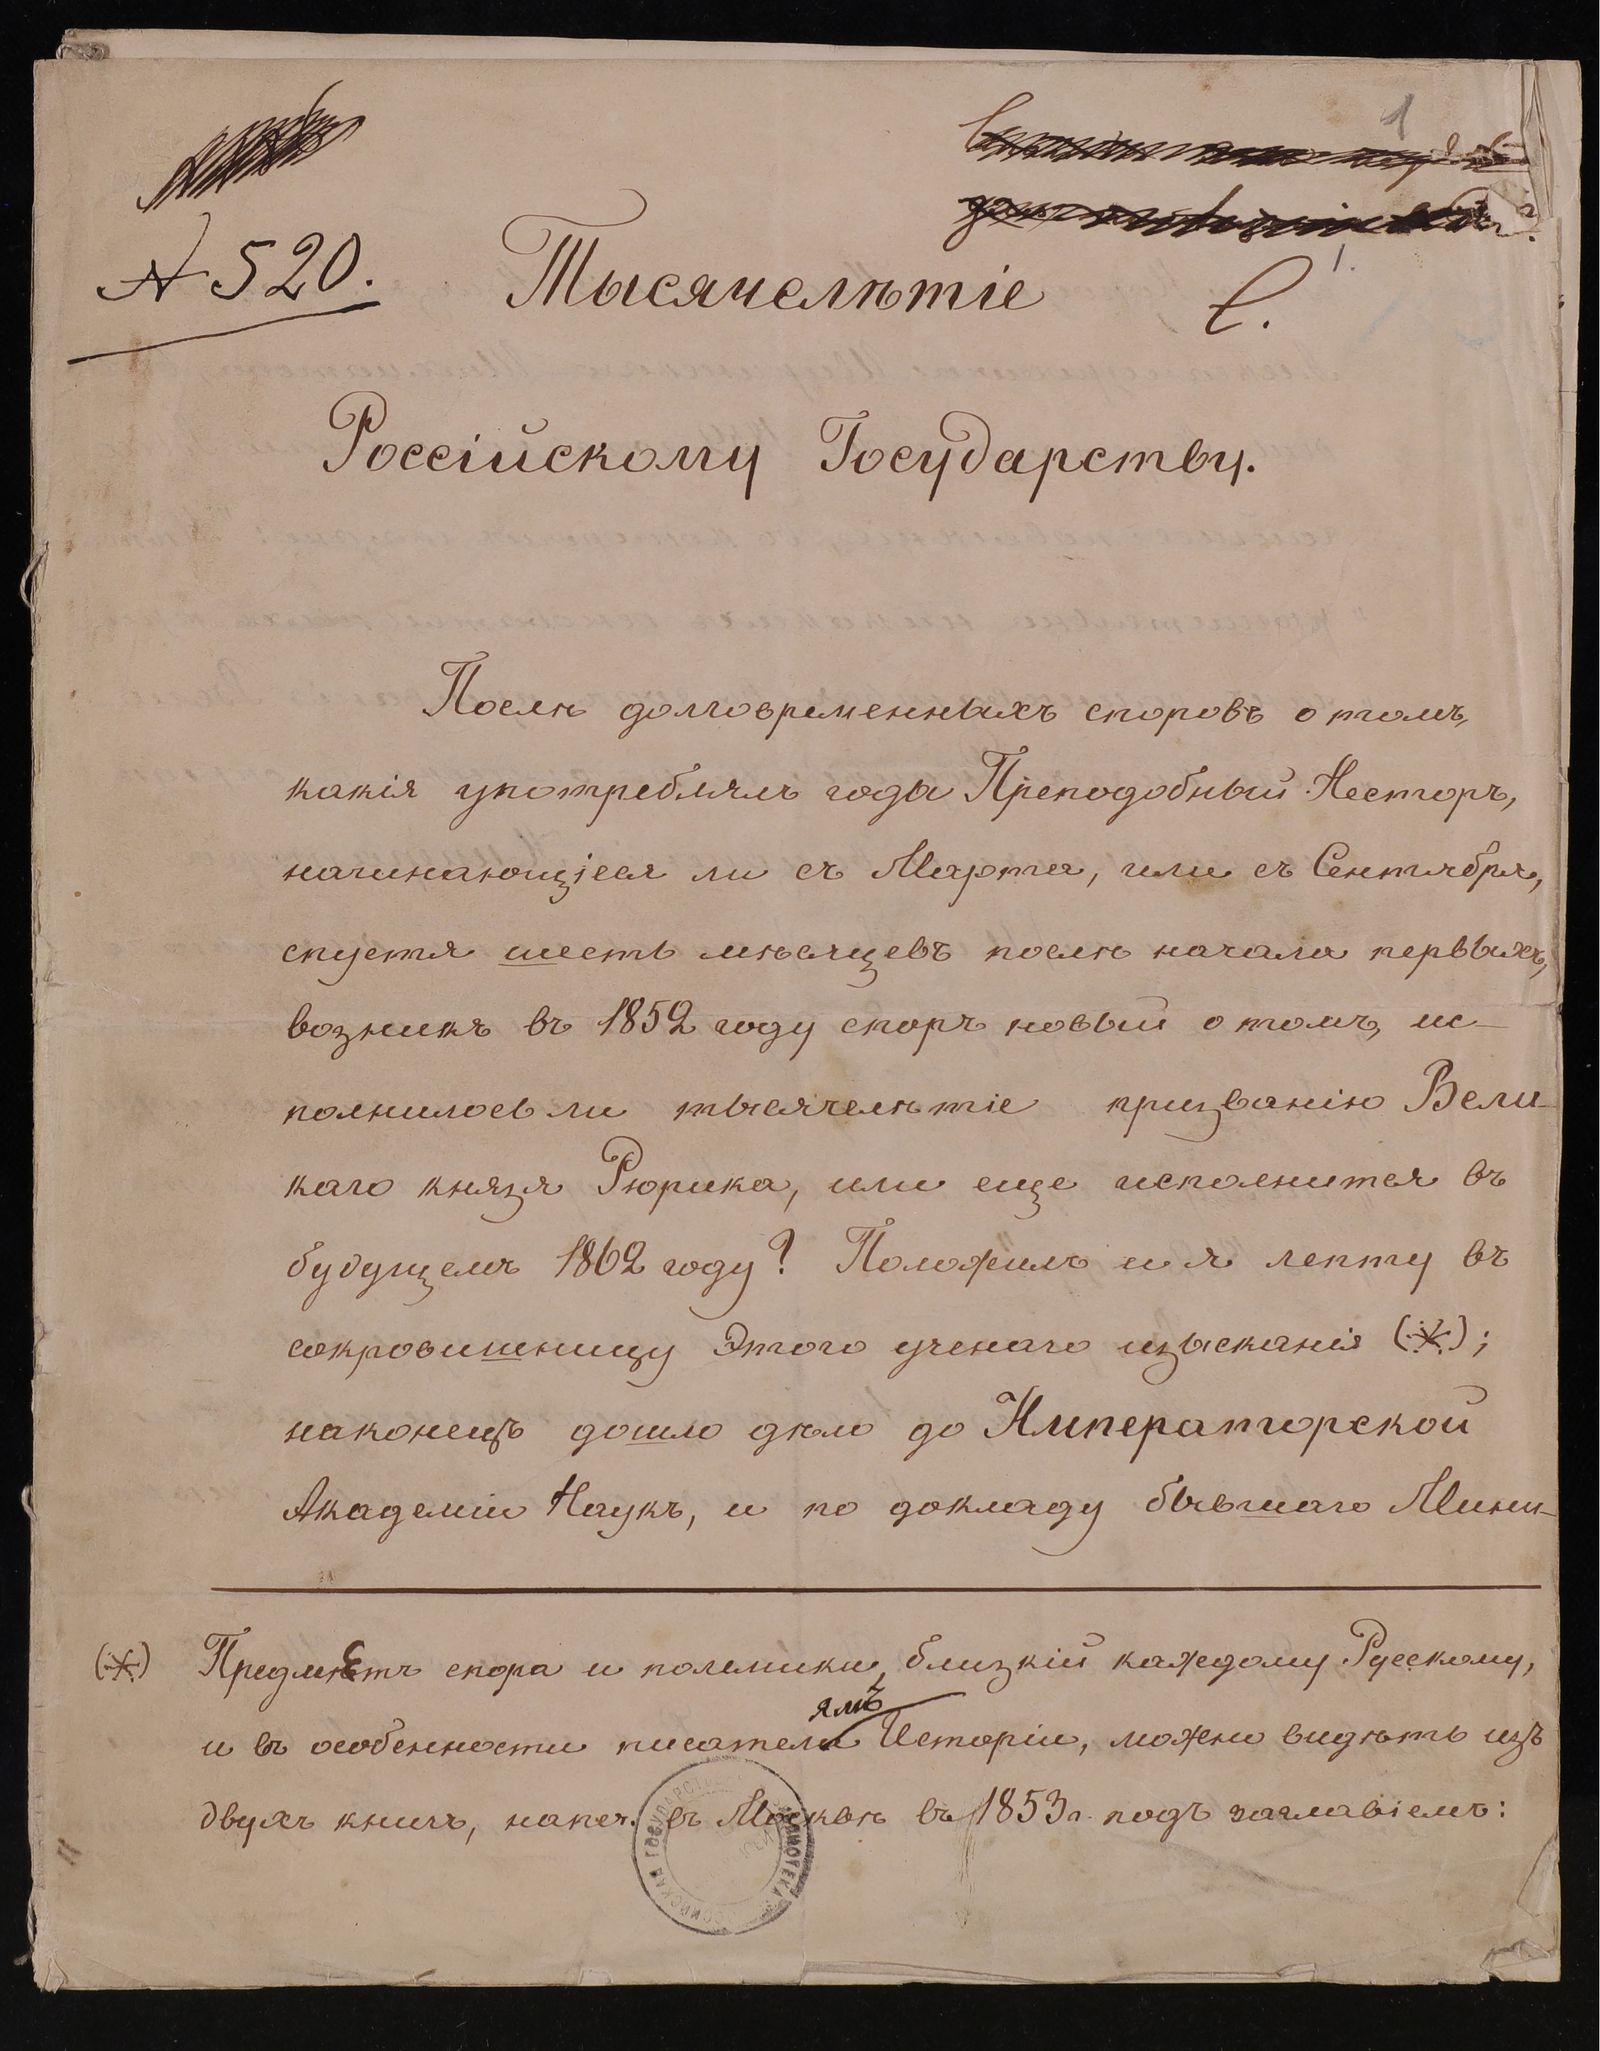 1
№ 520.
1.
Тысячелѣтіе
Россійскому Государству.
Послѣ долговременныхъ споровъ о томъ,
какія употреблялъ годы Преподобный Несторъ,
начинающіеся ли съ Марта, или съ Сентября,
спустя шесть мѣсяцевъ послѣ начала первыхъ,
возникъ въ 1852 году споръ новый о томъ, ис-
полнилось ли тысячелѣтіе призванію Вели-
каго князя Рюрика, или еще исполнится въ
будущемъ 1862 году? Положилъ и я лепту въ
сокровишницу Этого ученаго изысканія (※);
наконецъ дошло дѣло до Императорской
Академіи Наукъ, и по докладу бывшаго Мини-
(※) Предметъ спора и полемики, близкій каждому Русскому,
и въ особенности писателямъ Исторіи, можно видѣть изъ
двухъ книгъ, напеч. въ Москвѣ въ 1853 г. подъ заглавіемъ: